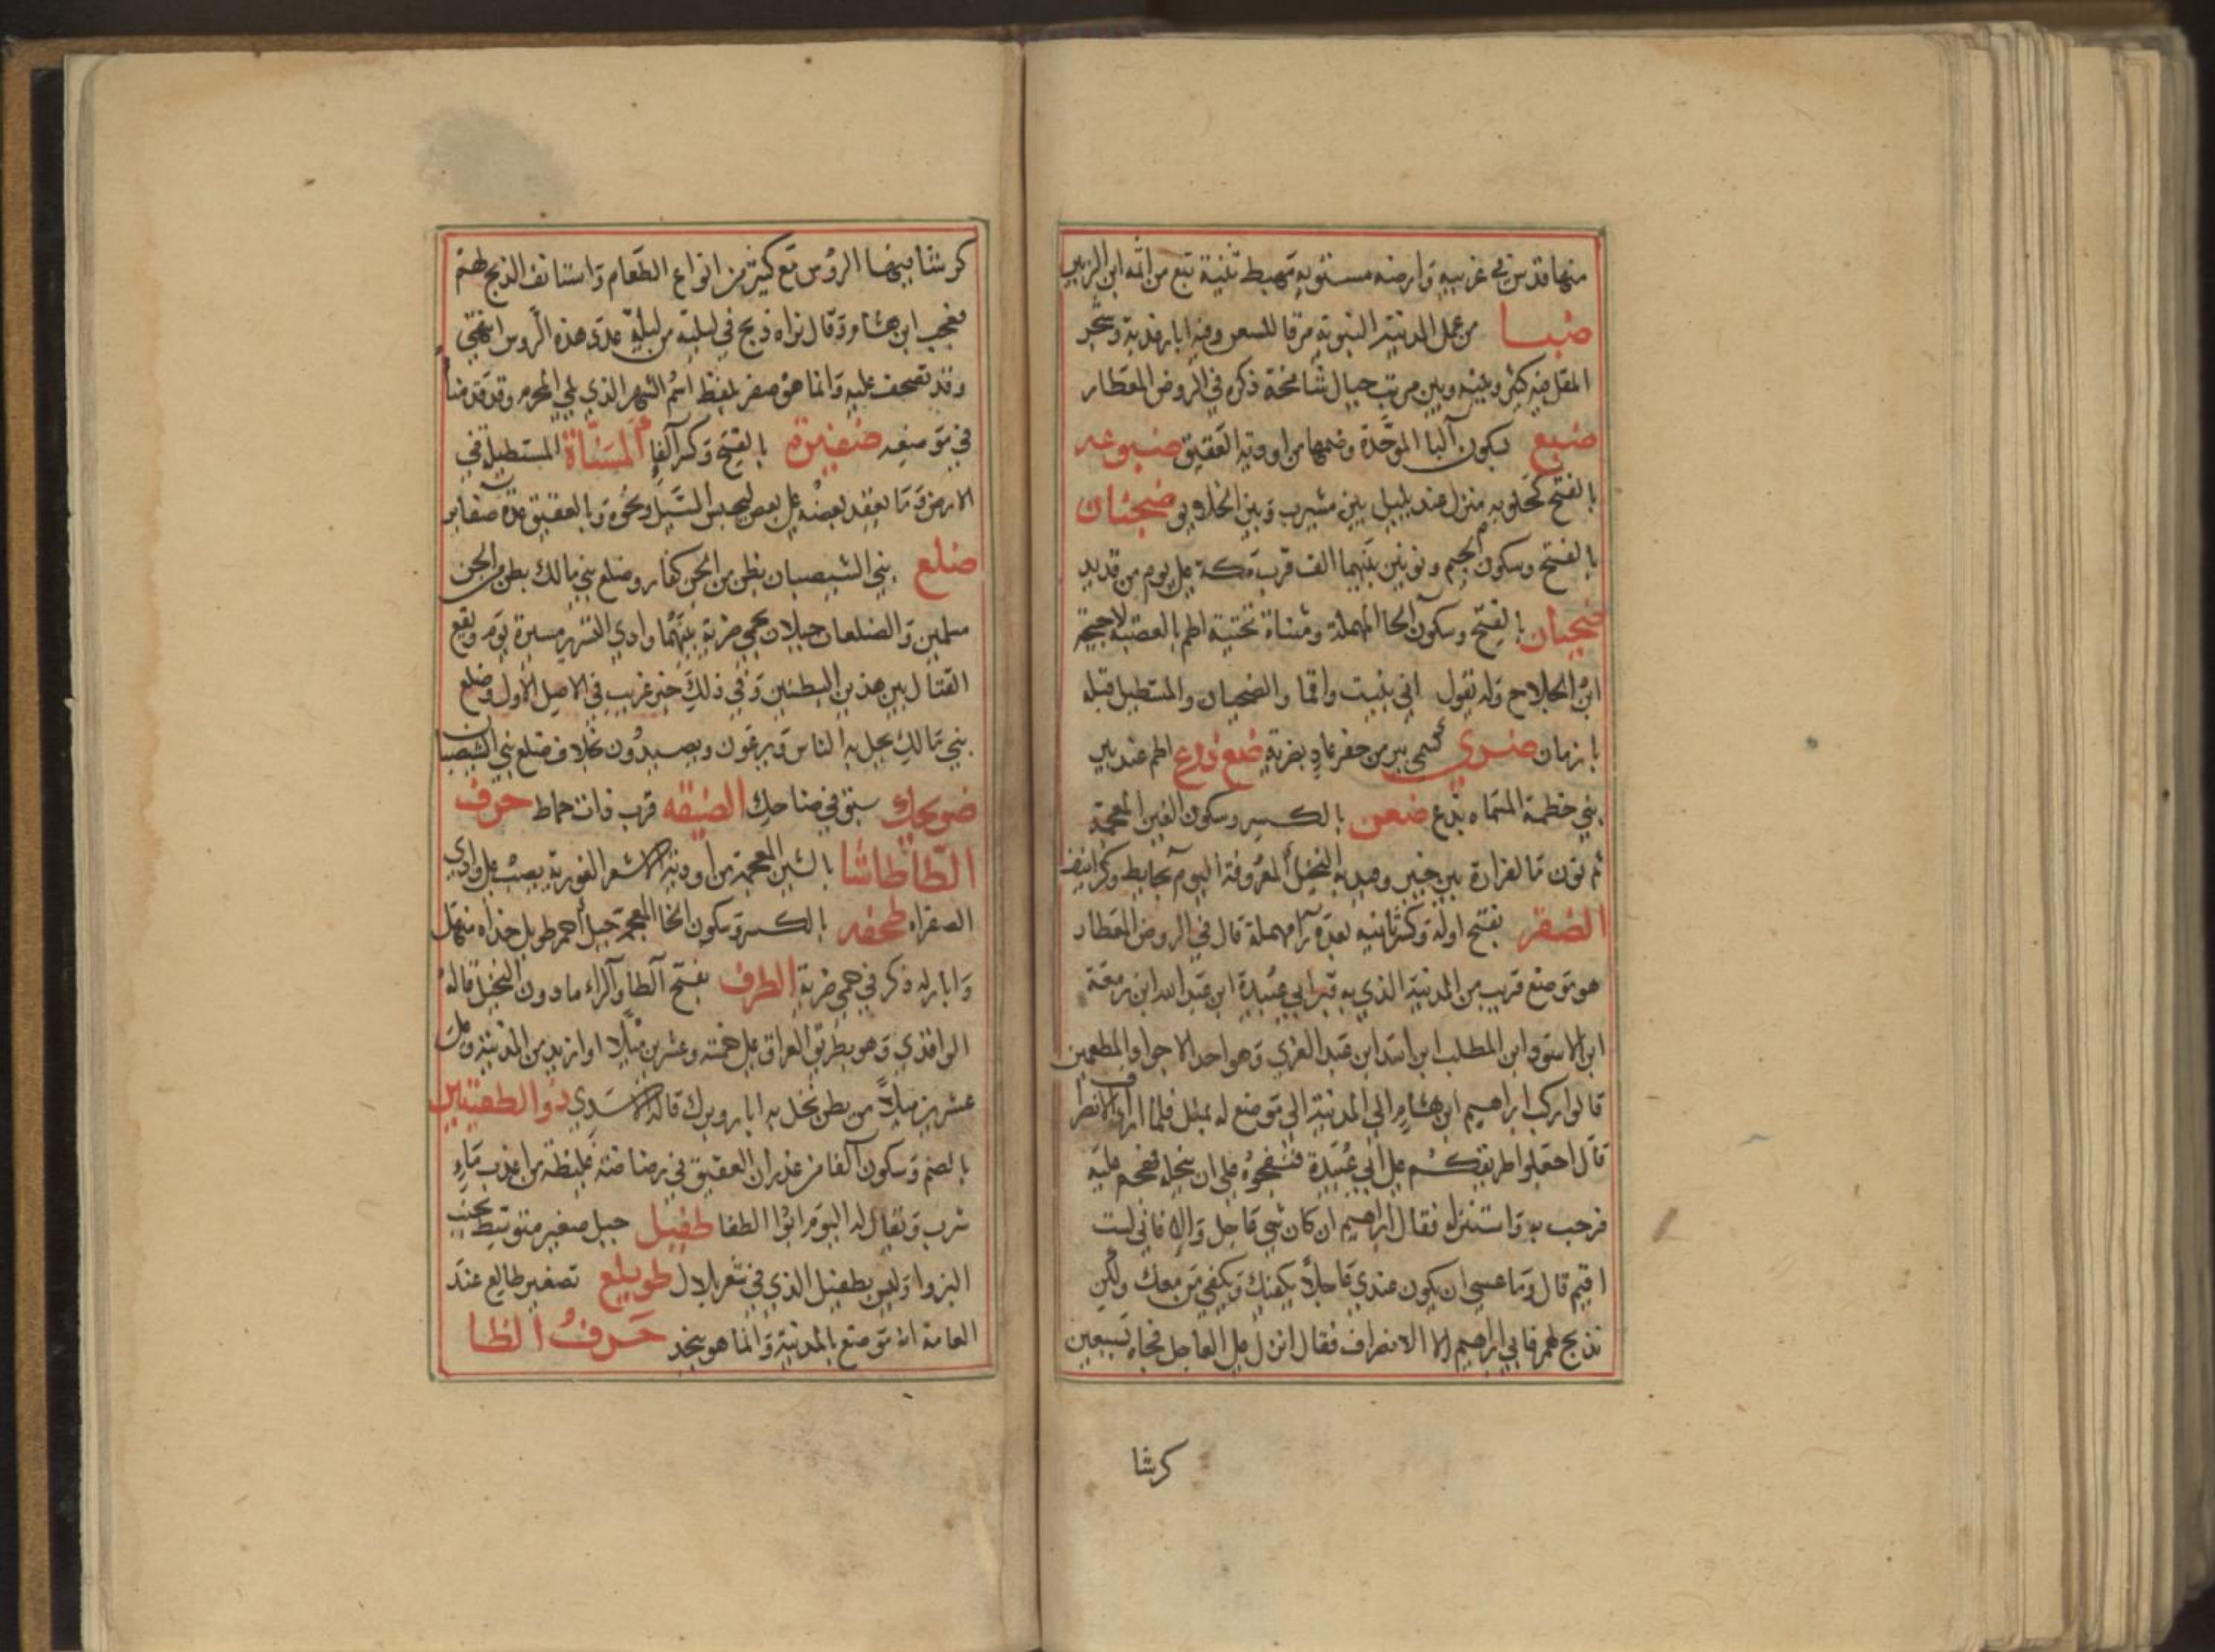 منها قد بن في غربيه وارضه مستويه مهبط ثنية تبع من امه ابن الزبير
ضبا من عمل المدنية النبوية مرفا للسعن وفيه ابار عذبة وشجر
المقل فيه كثير وبينه وبين مرتب جبال شامخة ذكره في الروض المعطار
ضبع بسكون البا الموحدة وضمها من اودية العقيق ضبوعه
بالفتح كحلوبه منزل عند يليل بين مشيرب وبين الخلايق ضجنان
بالفتح وسكون الجيم ونونين بينهما الف قرب مكة على يوم من قديد
ضحيان بالفتح وسكون الحا المهملة ومثناة تحتية اطم بالعصبة لاحيحة
ابن الجلاح وله يقول اني بنيت واقما والضحيان والمستظل قبله
بازمان ضري كسمي بير من حفر عاد بضرية ضع ذرع اطم عند بير
بني خطمة المسماه بذرع ضغن بالكسر وسكون الغين المعجمة
ثم نون ما لفزارة بين خيبر وفيد النخيل المعروفة اليوم بحايط
الضفر بفتح اوله وكسر ثانيه بعده را مهملة قال في الروض المعطار
هو موضع قريب من المدنية الذي به قبر ابي عبيدة ابن عبد الله ابن زمعة
ابن الاسود ابن المطلب ابن اسد ابن عبد العزي وهو احد الاجواد المطعمين
قالوا ركب ابراهيم ابن هشام الي المدنية الي موضع له بملل فلما اراد الانصراف
قال اجعلوا طريقكم على ابي عبيدة فنفجوه على ان بخله فهجم عليه
فرحب به واستنزله فقال ابراهيم ان كان شي عاجل والا فاني لست
اقيم قال وما عسى ان يكون عندي عاجلا يكفيك ويكفي من معك ولكن
نذبح لهم فابي ابراهيم الا الانصراف فقال انزل على العاجل فجاه بسبعين
كرشا
كرشا فيها الروس مع كثير من انواع الطعام واستانف الذبح لهم
فعجب ابن هشام وقال نراه ذبح في ليلته من ليلة عدد هذه الروس انتهى
وقد تصحف عليه وانما هو صفر بلفظ اسم الشهر الذي يلي المحرم وقد قدمنا
في موضعه ضفيرة بالفتح وكسر الفا المسناة المستطيلة في
الارض وما يعقد بعضه على بعض ليحبس السيل ونحوه وبالعقيق عدة ضفاير
ضلع بني الشيصبان بطن من الجن كفار وضلع بني مالك بطن من الجن
مسلمين والضلعان جبلان بحمي ضرية بينهما وادي التسرير مسيرة يوم ويقع
القتال بين هذين البطنين وفي ذلك خبر غريب في الاصل الاول وضلع
بني مالك يحل به الناس ويرعون ويصيدون بخلاف ضلع بني الشيصبان
ضويحك سبق في ضاحك الضيقه قرب ذات حماط حرف
الطا طاشا بالشين المعجمة من اودية الاشعر الغورية يصب على وادي
الصفراء طخفه بالكسر وسكون الخا المعجمة جبل احمر طويل حذاه منهل
وابار له ذكر في حمي ضرية الطرف بفتح الطا والراء ما دون النخيل قاله
الواقدي وهو بطريق العراق على خمسة وعشرين ميلا او ازيد من المدنية وعلى
عشرين ميلا من بطن نخل به ابار وبرك قاله الاسدي ذو الطفيتين
بالضم وسكون الفا من غدران العقيق في رضا ضة غليظة من اعذب ماء
شرب ويقال له اليوم ابوا الطفا طفيل جبل صغير متوسط بحبت
البزوا وليس بطفيل الذي في شعر بلال طويلع تصغير طالع عند
العامة انه موضع بالمدنية وانما هو بنجد حرف الظا